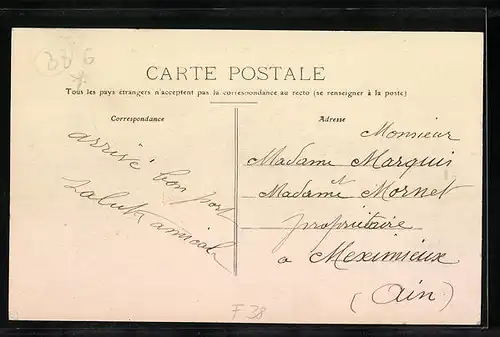 BB G
CARTE POSTALE
Tous les pays étrangers n'acceptent pas la correspondance au recto (se renseigner à la poste)
Correspondance
arrivé bon port
saluts amicals
Adresse
Monsieur
Madame Marquis
et
Madame Mornet
propriétaire
a Meximieux
(Ain)
F 38